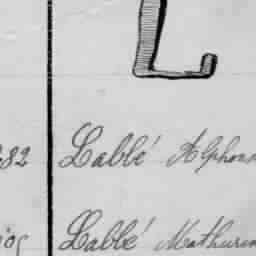 L
82 Labbé Alphons
Labbé Mathurin